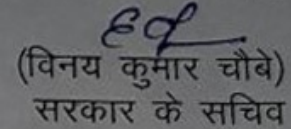 (विनय कुमार चौबे)
सरकार के सचिव